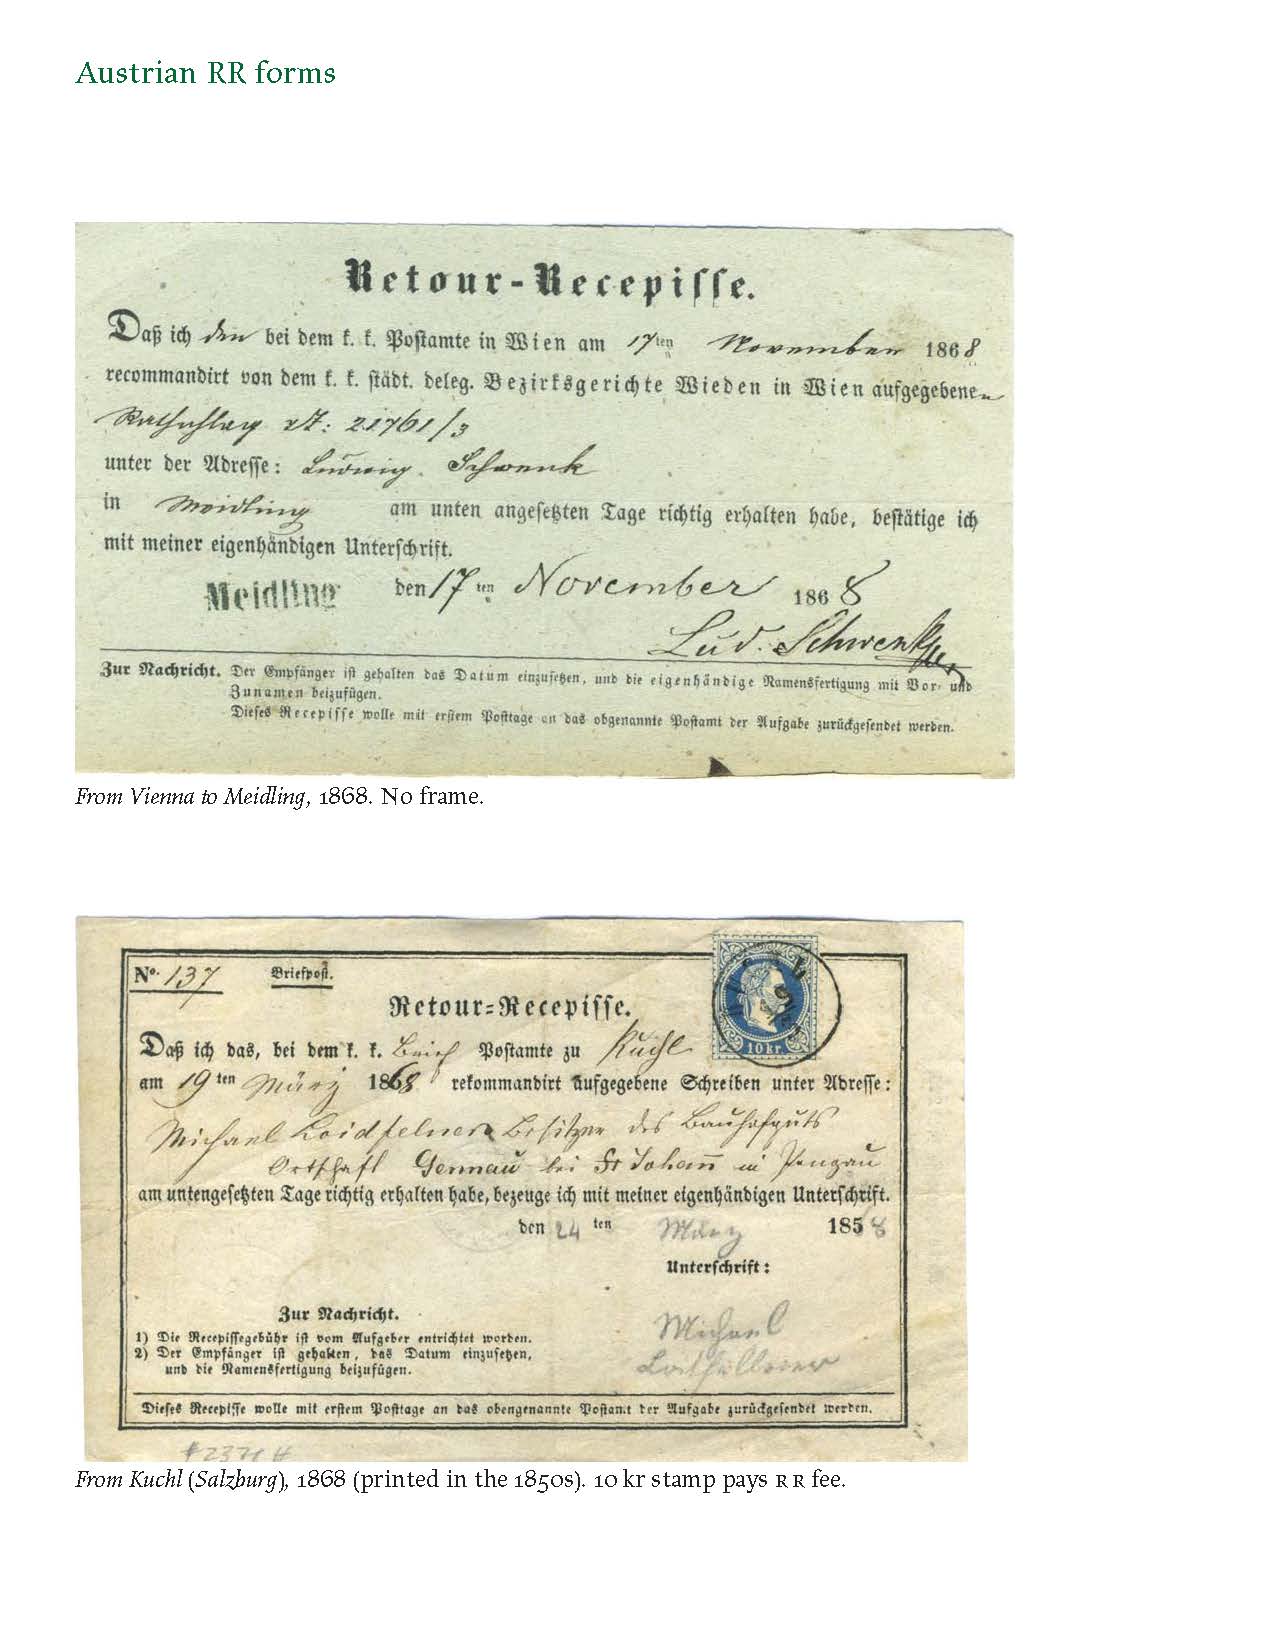 Austrian RR forms
Retour-Recepisse.
Daß ich den bei dem k. k. Postamte in Wien am 17ten November 1868
recommandirt von dem k. k. städt. deleg. Bezirksgerichte Wieden in Wien aufgegebenen
Rathschlag Z: 21761/3
unter der Adresse: Ludwig Schwenk
in Meidling am unten angesetzten Tage richtig erhalten habe, bestätige ich
mit meiner eigenhändigen Unterschrift.
Meidling den 17ten November 1868
Lud. Schwenk
Zur Nachricht. Der Empfänger ist gehalten das Datum einzusetzen, und die eigenhändige Namensfertigung mit Vor- und
Zunamen beizufügen.
Dieses Recepisse wolle mit erstem Posttage an das obgenannte Postamt der Aufgabe zurückgesendet werden.
From Vienna to Meidling, 1868. No frame.
No. 137 Briefpost.
Retour=Recepisse.
10 kr.
Daß ich das, bei dem k. k. Brief Postamte zu Kuchl
am 19ten März 1868 rekommandirt aufgegebene Schreiben unter Adresse:
Michael Loidfelner Besitzer des Bauhofguts
Ortschaft Gennau bei St Johann in Pongau
am untengesetzten Tage richtig erhalten habe, bezeuge ich mit meiner eigenhändigen Unterschrift.
den 24ten März 1858
Unterschrift:
Michael
Zur Nachricht.
1) Die Recepissegebühr ist vom Aufgeber entrichtet worden.
2) Der Empfänger ist gehalten, das Datum einzusetzen,
und die Namensfertigung beizufügen.
Dieses Recepisse wolle mit erstem Posttage an das obengenannte Postamt der Aufgabe zurückgesendet werden.
From Kuchl (Salzburg), 1868 (printed in the 1850s). 10 kr stamp pays RR fee.